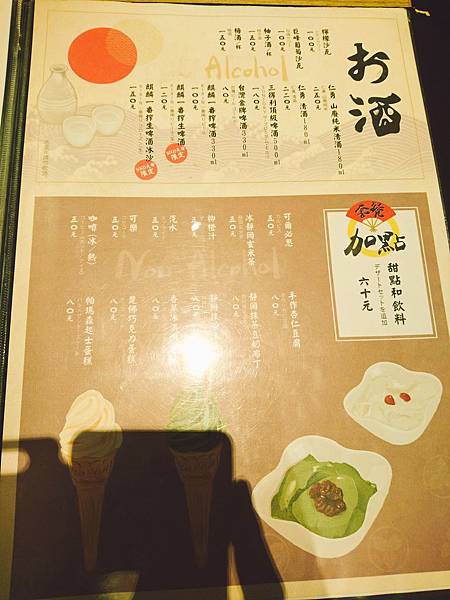 お酒
Alcohol
檸檬沙瓦
一〇〇元
巨峰葡萄沙瓦
一〇〇元
柚子酒/杯
一五〇元
梅酒/杯
一五〇元
仁勇 山廢純米清酒180ml
二五〇元
仁勇 清酒180ml
二二〇元
三得利頂級啤酒500ml
一八〇元
台灣金牌啤酒330ml
一〇〇元
麒麟一番搾生啤酒330ml
一〇〇元
麒麟一番搾生啤酒
一二〇元
限定
麒麟一番搾生啤酒冰沙
一五〇元
限定
套餐
加點
甜點和飲料
デザートセットを追加
六十元
Non Alcohol
可爾必思
五〇元
冰靜岡玄米茶
五〇元
柳橙汁
五〇元
汽水
五〇元
可樂
五〇元
咖啡(冰/熱)
五〇元
手作杏仁豆腐
八〇元
靜岡抹茶豆奶布丁
八〇元
靜岡抹
八〇元
香草冰
八〇元
覓佛巧克力蛋糕
八〇元
帕瑪森起士蛋糕
八〇元